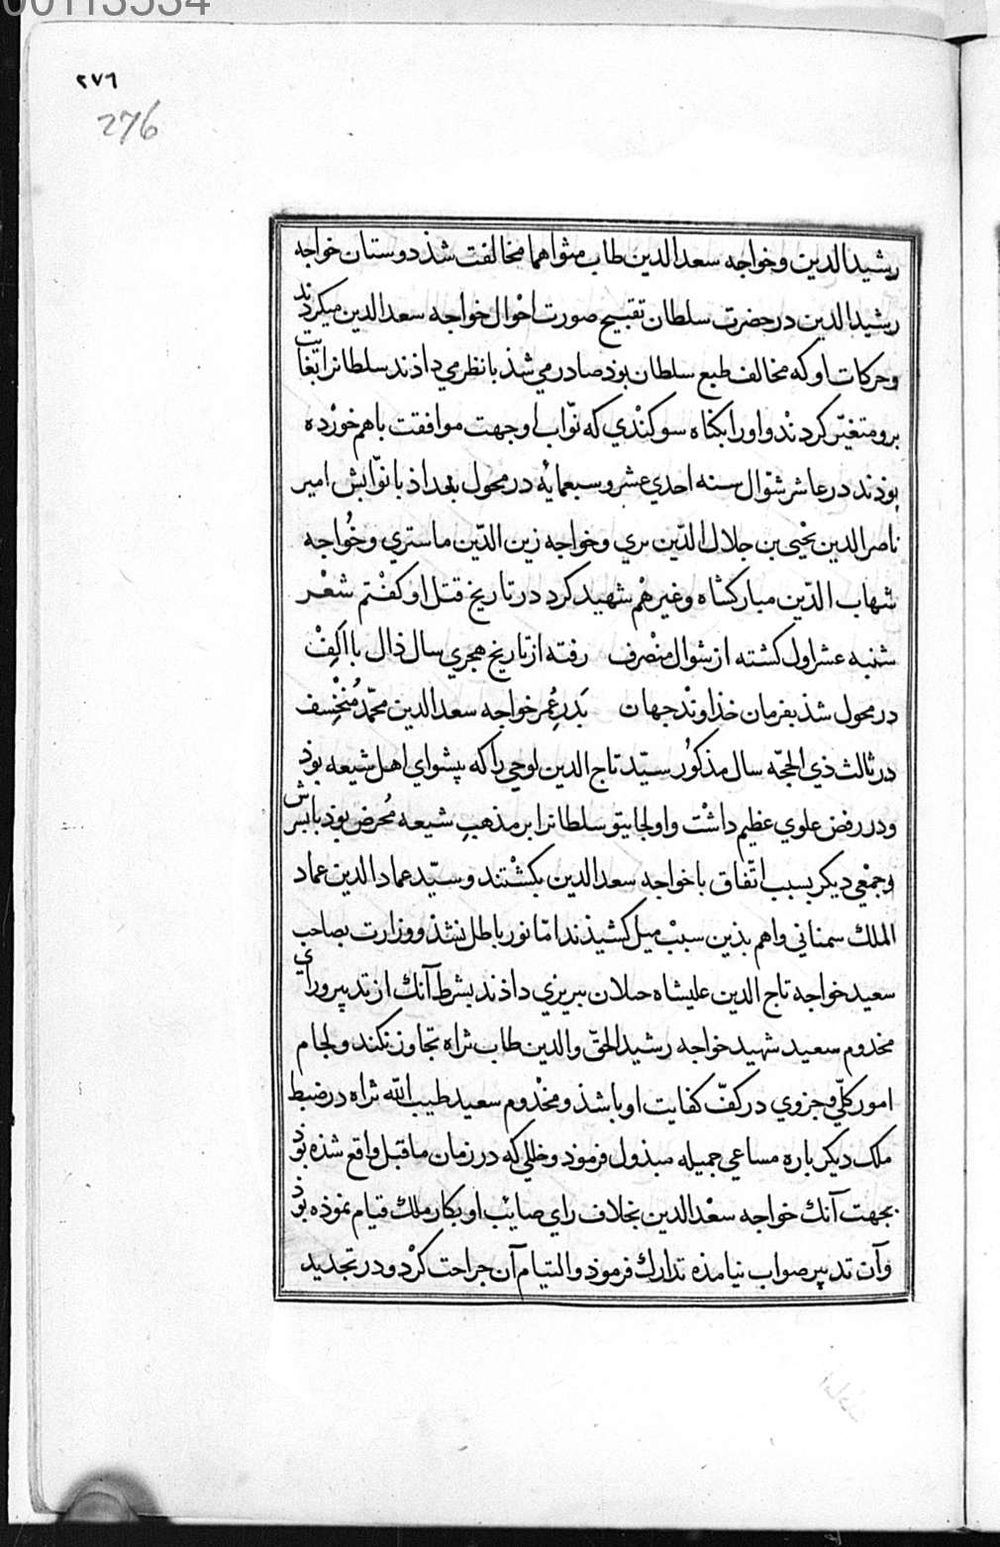 00113534
٢٧٦
276
رشیدالدین وخواجه سعدالدین طاب مثواهما مخالفت شذ دوستان خواجه
رشیدالدین درحضرت سلطان تقبیح صورت احوال خواجه سعدالدین میکردند
وحرکات او که مخالف طبع سلطان بوذ صادر می شذ بانظر می داذند سلطانرا بغایت
برو متغیّر کردند و اورا بکناه سوکندي که نوّاب او جهت موافقت باهم خورده
بوذند در عاشر شوّال سنه احدي عشر وسبعمایه در محول بغداذ با نوّابش امیر
ناصرالدین یحیی بن جلال الدّین بري وخواجه زین الدّین ماستري وخواجه
شهاب الدّین مبارکشاه وغیرهم شهید کرد در تاریخ قتل او کفتم شعر
شنبه عشر اول کشته از شوال منصرف رفته از تاریخ هجري سال ذال با الف
در محول شذ بفرمان خذاوند جهان بدر عمر خواجه سعدالدین محمّد منخسف
در ثالث ذي الحجّه سال مذکور سیّد تاج الدین لوجي را که پیشواي اهل شیعه بوذ
ودر رفض علوي عظیم داشت واولجایتو سلطانرا بر مذهب شیعه محرض بوذ با پسرش
وجمعي دیکر بسبب اتّفاق با خواجه سعدالدین بکشتند وسیّد عمادالدین عماد
الملك سمناني واهم بذین سبب میل کشیذند امّا نور باطل نشذ ووزارت بصاحب
سعید خواجه تاج الدین علیشاه جیلان تبریزي داذند بشرط آنك از تدبیر وراي
مخدوم سعید شهید خواجه رشیدالحقّ والدین طاب ثراه تجاوز نکند ولجام
امور کلّي وجزوي در کفّ کفایت او باشذ ومخدوم سعید طیب الله ثراه در ضبط
ملک دیکر باره مساعي جمیله مبذول فرموذ وخللي که در زمان ماقبل واقع شذه بوذ
بجهت آنك خواجه سعدالدین بخلاف راي صایب او بکار ملك قیام نموذه بوذ
وآن تدبیر صواب نیامذه تدارك فرموذ والتیام آن جراحت کرد ودر تجدید